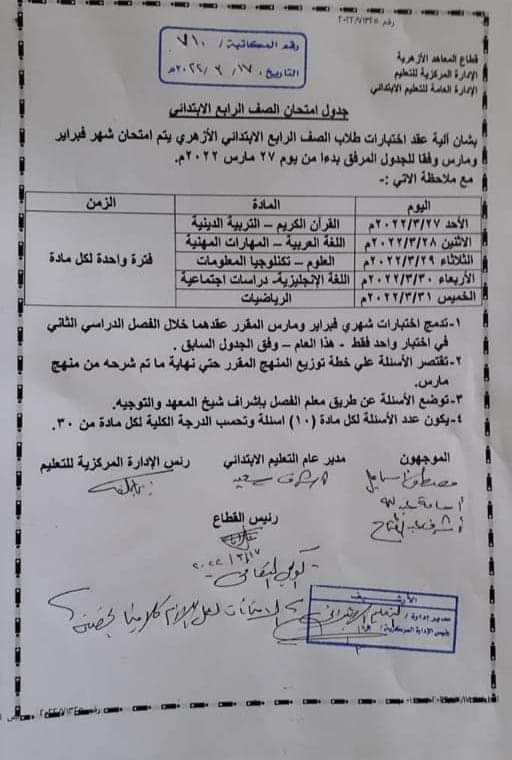 رقم المكاتبة / ٧١٠
التاريخ / ١٧ / ٣ / ٢٠٢٢م
قطاع المعاهد الأزهرية
الإدارة المركزية للتعليم
الإدارة العامة للتعليم الابتدائي
جدول امتحان الصف الرابع الابتدائي
بشان ألية عقد اختبارات طلاب الصف الرابع الابتدائي الأزهري يتم امتحان شهر فبراير
ومارس وفقا للجدول المرفق بدءا من يوم ٢٧ مارس ٢٠٢٢م.
مع ملاحظة الاتي :-
اليوم المادة الزمن
الأحد ٢٠٢٢/٣/٢٧م القرآن الكريم – التربية الدينية
الاثنين ٢٠٢٢/٣/٢٨م اللغة العربية – المهارات المهنية
الثلاثاء ٢٠٢٢/٣/٢٩م العلوم – تكنلوجيا المعلومات فترة واحدة لكل مادة
الأربعاء ٢٠٢٢/٣/٣٠م اللغة الإنجليزية- دراسات اجتماعية
الخميس ٢٠٢٢/٣/٣١م الرياضيات
١-تدمج اختبارات شهري فبراير ومارس المقرر عقدهما خلال الفصل الدراسي الثاني
في اختبار واحد فقط - هذا العام – وفق الجدول السابق .
٢-تقتصر الأسئلة علي خطة توزيع المنهج المقرر حتي نهاية ما تم شرحه من منهج
مارس.
٣-توضع الأسئلة عن طريق معلم الفصل بإشراف شيخ المعهد والتوجيه.
٤-يكون عدد الأسئلة لكل مادة (١٠) اسئلة وتحسب الدرجة الكلية لكل مادة من ٣٠.
الموجهون مدير عام التعليم الابتدائي رئس الإدارة المركزية للتعليم
رئيس القطاع
الأرشيف
مدير إدارة /
رئيس الإدارة المركزية /